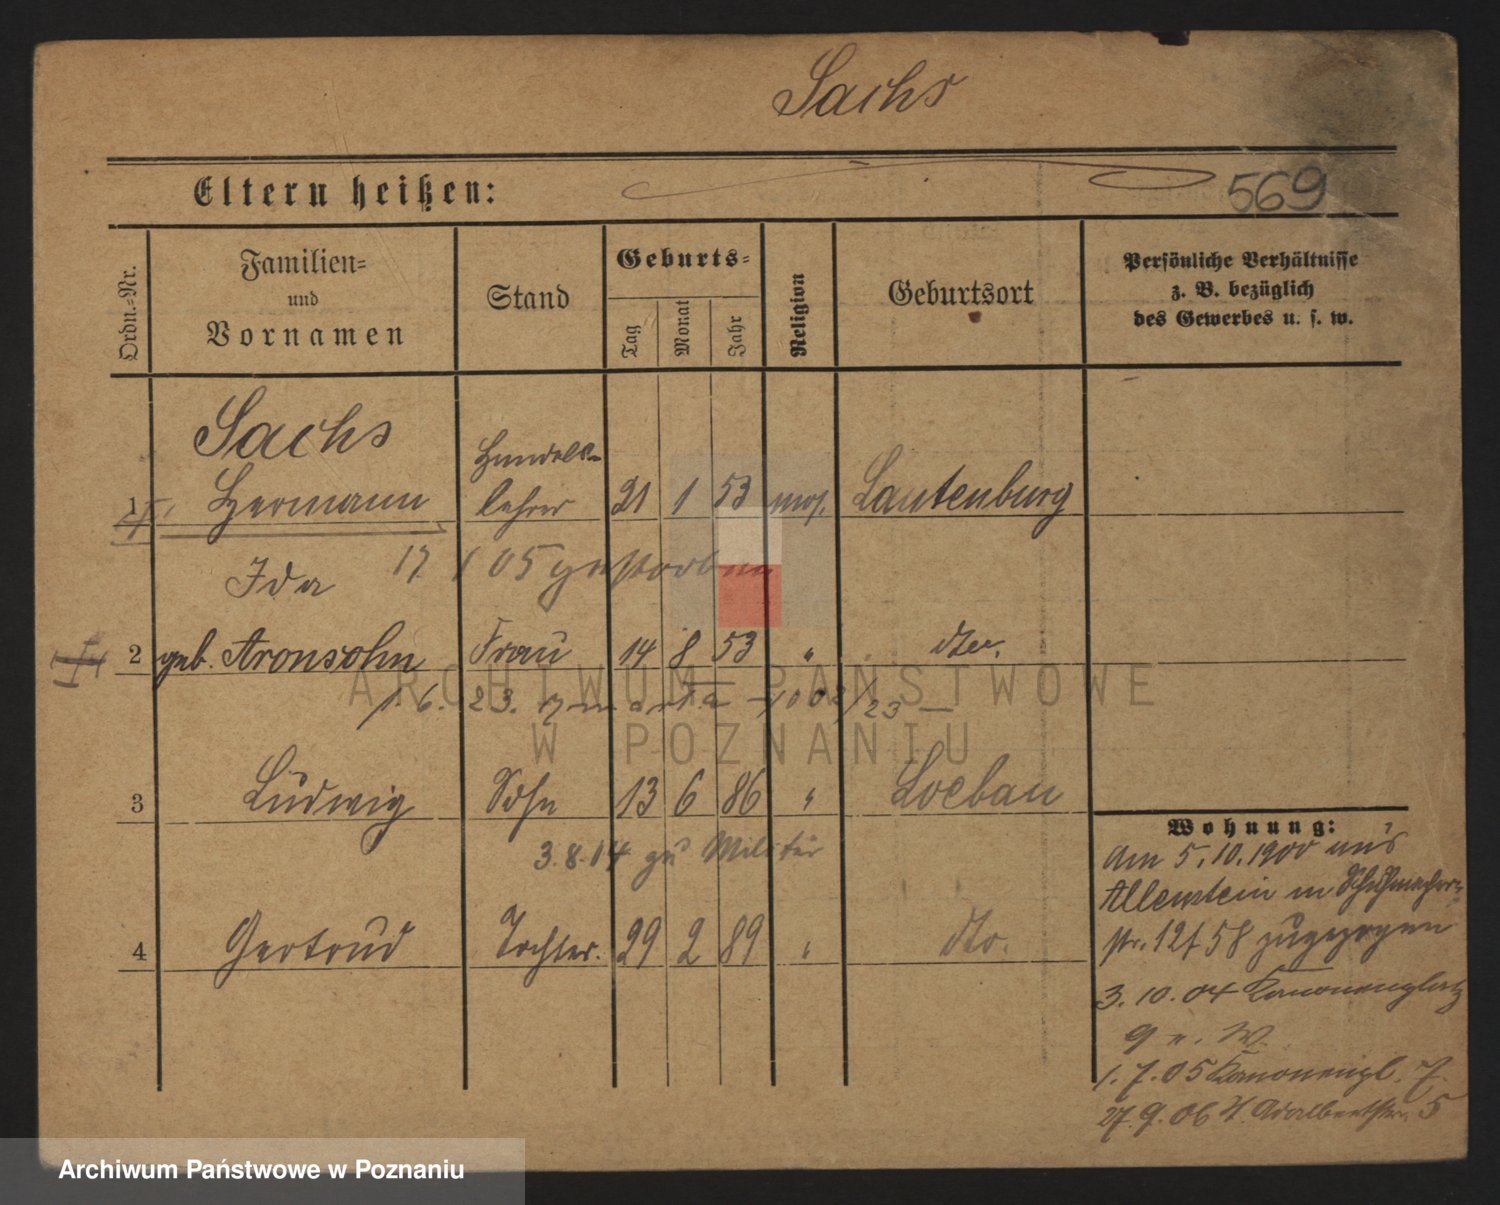 Sachs
Eltern heißen:
569
Ordn.-Nr.
Familien-
und
Vornamen
Stand
Geburts-
Tag
Monat
Jahr
Religion
Geburtsort
Persönliche Verhältnisse
z. B. bezüglich
des Gewerbes u. s. w.
Sachs
Handels-
1 Hermann lehrer 21 1 53 mos. Lautenburg
17 1 05 gestorben
Ida
2 geb. Aronsohn Frau 14 8 53 " dto.
1. 6. 23.
3 Ludwig Sohn 13 6 86 " Loebau
3.8.14 zu Militär
4 Gertrud Tochter. 29 2 89 " dto.
Wohnung:
Am 5.10.1900 aus
Allenstein in Schuhmacher-
str. 12 58 zugezogen
3.10.04 Kanonenplatz
9 W.
1.7.05 Kanonenpl. 7.
27.9.06 Adalbertstr. 5
ARCHIWUM PAŃSTWOWE
W POZNANIU
Archiwum Państwowe w Poznaniu